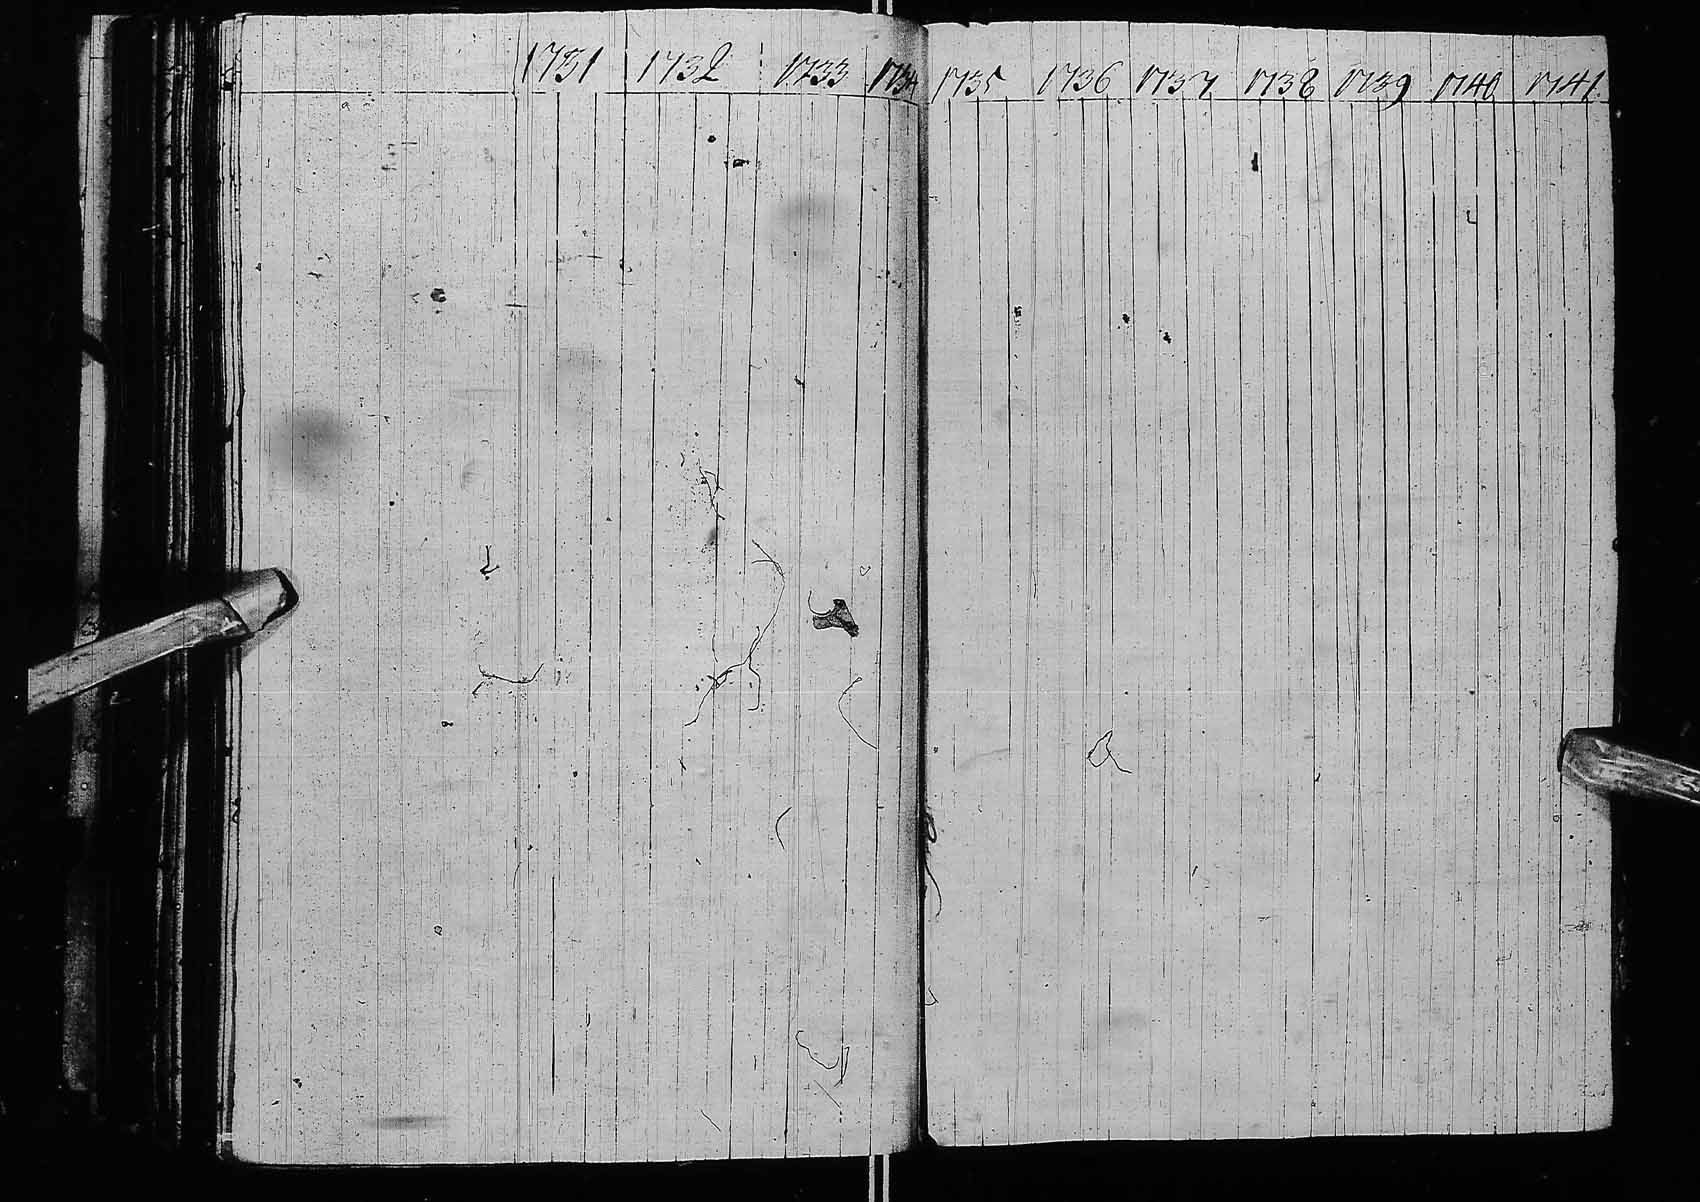 1731 1732 1733 1734 1735 1736 1737 1738 1739 1740 1741